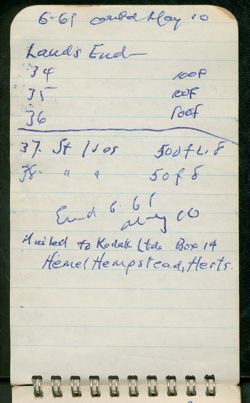 6.61 could May 10
Land's End
34 100F
35 100F
36 500F
37. St Ives 500f
38. " " 50f8
End 6.61
May 10
Mailed to Kodak Ltd. Box 14
Hemel Hempstead, Herts.